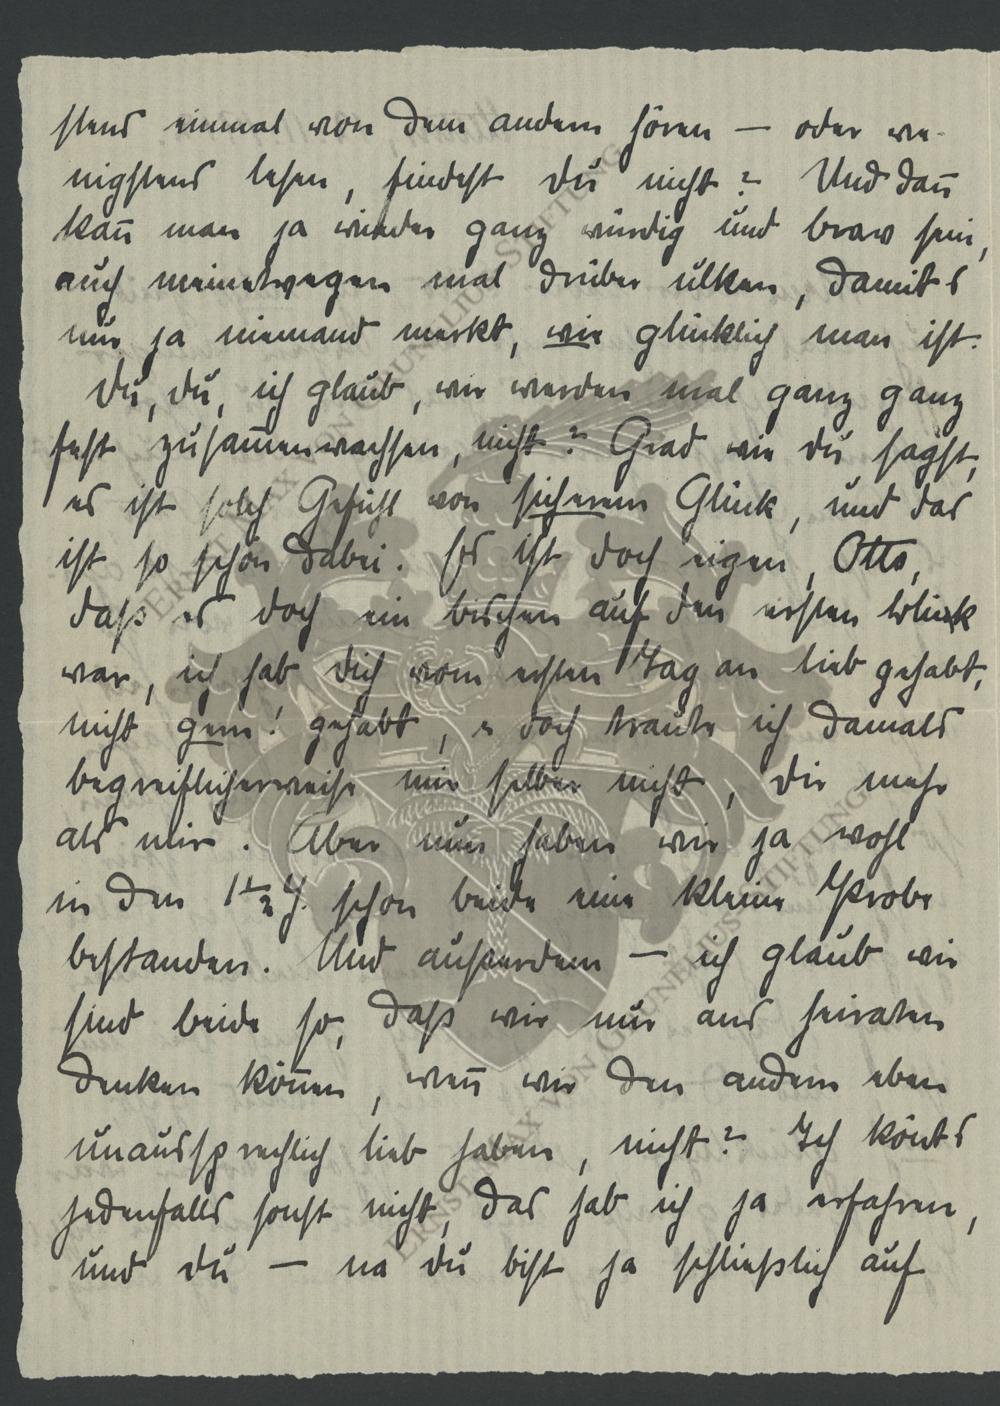 stens einmal von dem andern hören — oder we-
nigstens lesen, findest du nicht? Und dan̄
kan̄ man ja wieder ganz würdig und brav sein,
auch meinetwegen mal drüber ulken, damit s
nur ja niemand merkt, wie glücklich man ist.
Du, du, ich glaub, wir werden mal ganz ganz
fest zusam̄enwachsen, nicht? Grad wie du sagst,
es ist solch Gefühl von sicherem Glück, und das
ist so schön dabei. Es ist doch eigen, Otto,
daß es doch ein bischen auf den ersten Blick
war, ich hab dich vom ersten Tag an lieb gehabt,
nicht gern! gehabt, u doch traute ich damals
begreiflicherweise mir selber nicht, dir mehr
als mir. Aber nun haben wir ja wohl
in den 1½ J. schon beide eine kleine Probe
bestanden. Und ausserdem — ich glaub wir
sind beide so, daß wir nur ans heiraten
denken kön̄en, wen̄ wir den andern eben
unaussprechlich lieb haben, nicht? Ich kön̄t s
jedenfalls sonst nicht, das hab ich ja erfahren,
und du — na du bist ja schließlich auf